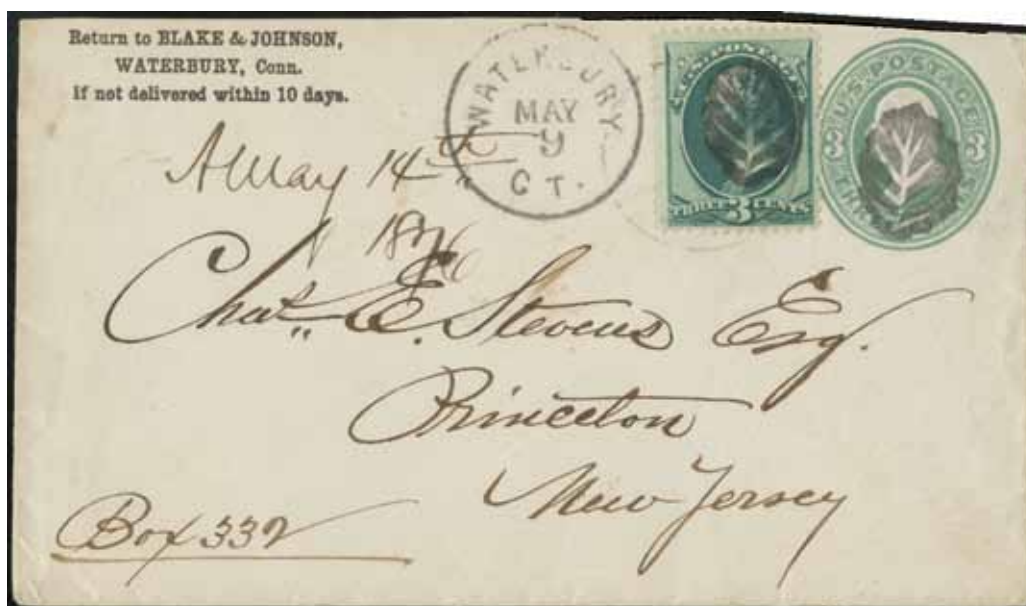 Return to BLAKE & JOHNSON,
WATERBURY, Conn.
If not delivered within 10 days.
WATERBURY
MAY
9
CT.
U.S. POSTAGE
THREE 3 CENTS
U.S. POSTAGE
3 3
A May 14th
1876
Chas. E. Stevens Esq.
Princeton
New Jersey
Box 332